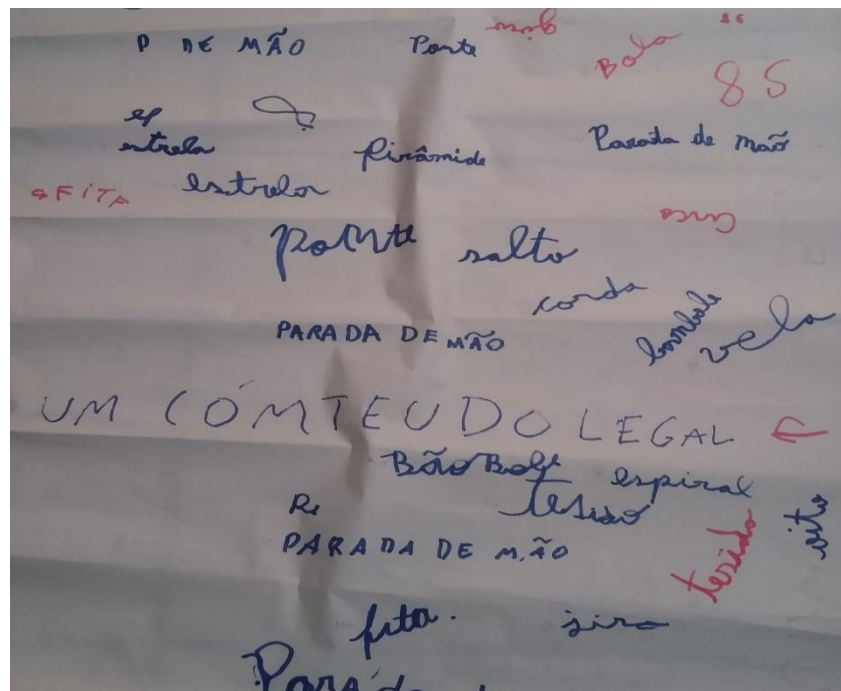 P DE MÃO
Ponte
giro
Bola
86
85
es
entrela
Pirâmide
Parada de mão
estrela
FITA
ponte
salto
Circo
corda
bambolê
vela
PARADA DE MÃO
UM CÓMTEUDO LEGAL
espiral
PARADA DE MÃO
tesido
oito
fita.
jiro
Parada